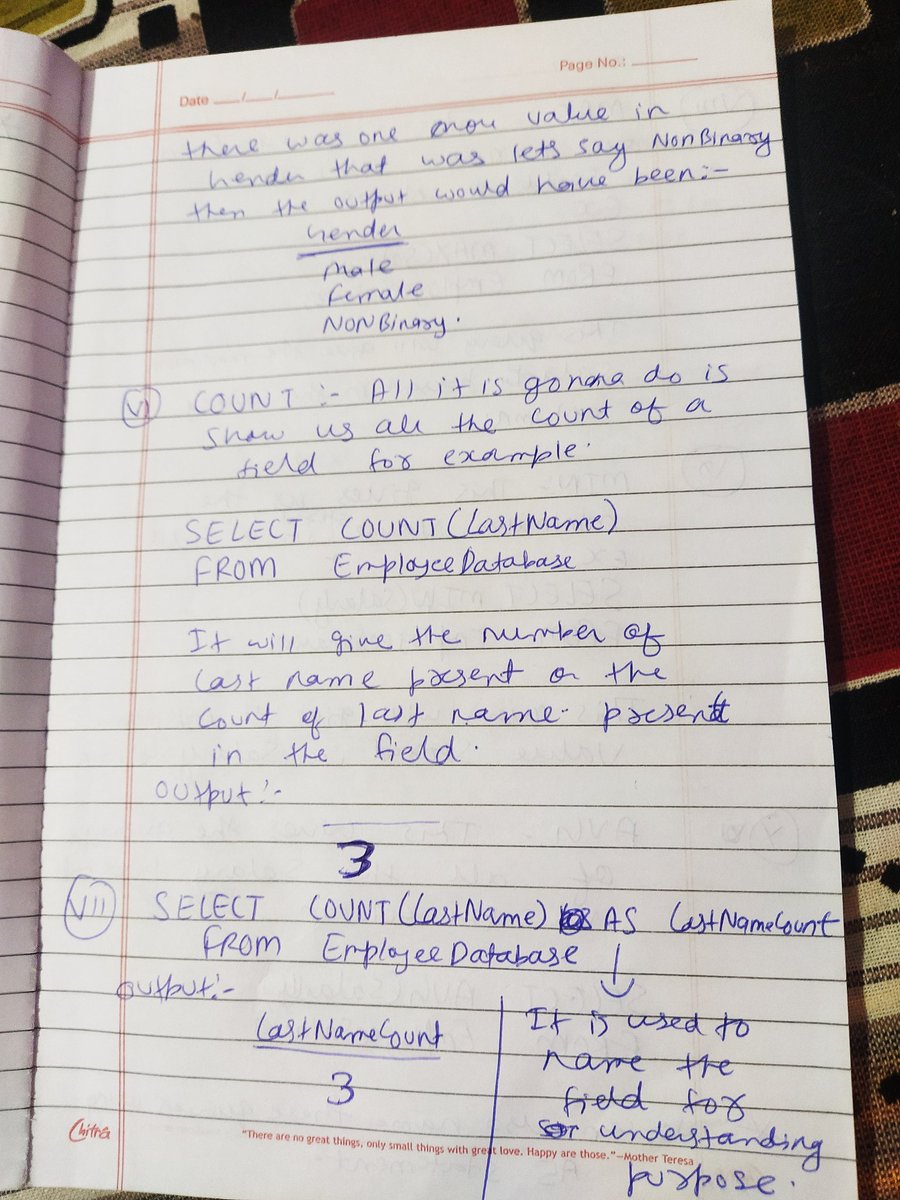 Page No.:
Date __/__/__
there was one more value in
Gender that was lets say NonBinary
then the output would have been:-
Gender
Male
Female
NONBinary.
(vi) COUNT :- All it is gonna do is
show us all the count of a
field for example.
SELECT COUNT(LastName)
FROM EmployeeDatabase
It will give the number of
last name present or the
count of last name. present
in the field.
output:-
3
(vii) SELECT COUNT(LastName) AS LastNameCount
FROM EmployeeDatabase
output:-
LastNameCount
3
It is used to
name the
field for
understanding
purpose.
Chitra
"There are no great things, only small things with great love. Happy are those."–Mother Teresa